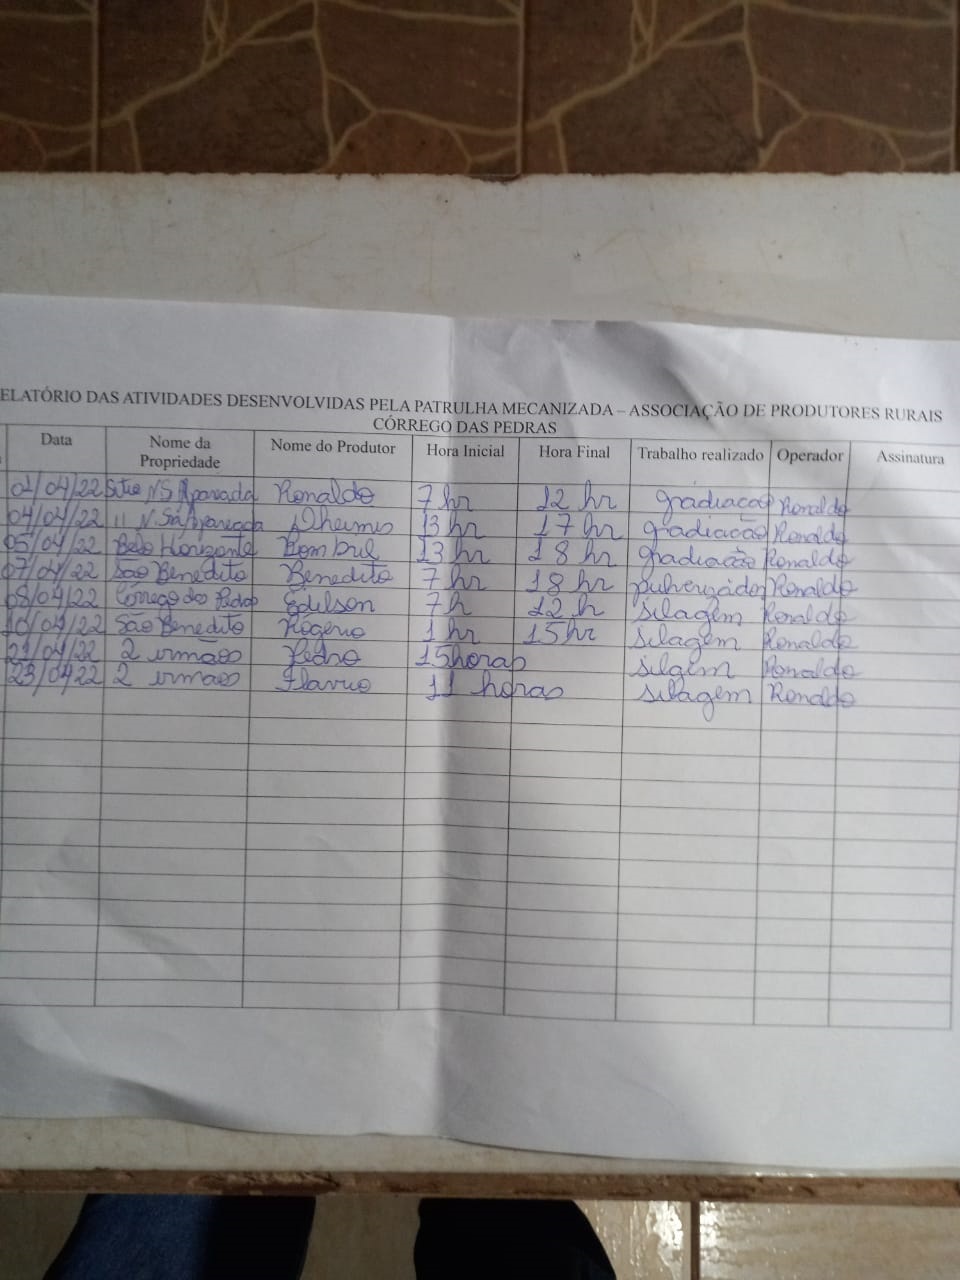 ELATÓRIO DAS ATIVIDADES DESENVOLVIDAS PELA PATRULHA MECANIZADA – ASSOCIAÇÃO DE PRODUTORES RURAIS
CÓRREGO DAS PEDRAS
Data Nome da Propriedade Nome do Produtor Hora Inicial Hora Final Trabalho realizado Operador Assinatura
/04/22 Sitio NS Aparecida Ronaldo 7 hr 12 hr gradiação Ronaldo
04/04/22 11 N. Sra Aparecida 13 hr 17 hr gradiação Ronaldo
05/04/22 Belo Horizonte Bombril 13 hr 18 hr gradiação Ronaldo
07/04/22 São Benedito Benedito 7 hr 18 hr Ronaldo
08/04/22 Corrego das Pedras Edilson 7 h 12 h silagem Ronaldo
10/04/22 São Benedito Rogerio 1 hr 15 hr silagem Ronaldo
21/04/22 2 irmãos Pedro 15 horas silgem Ronaldo
23/0422 2 irmãos Flavio 11 horas silagem Ronaldo